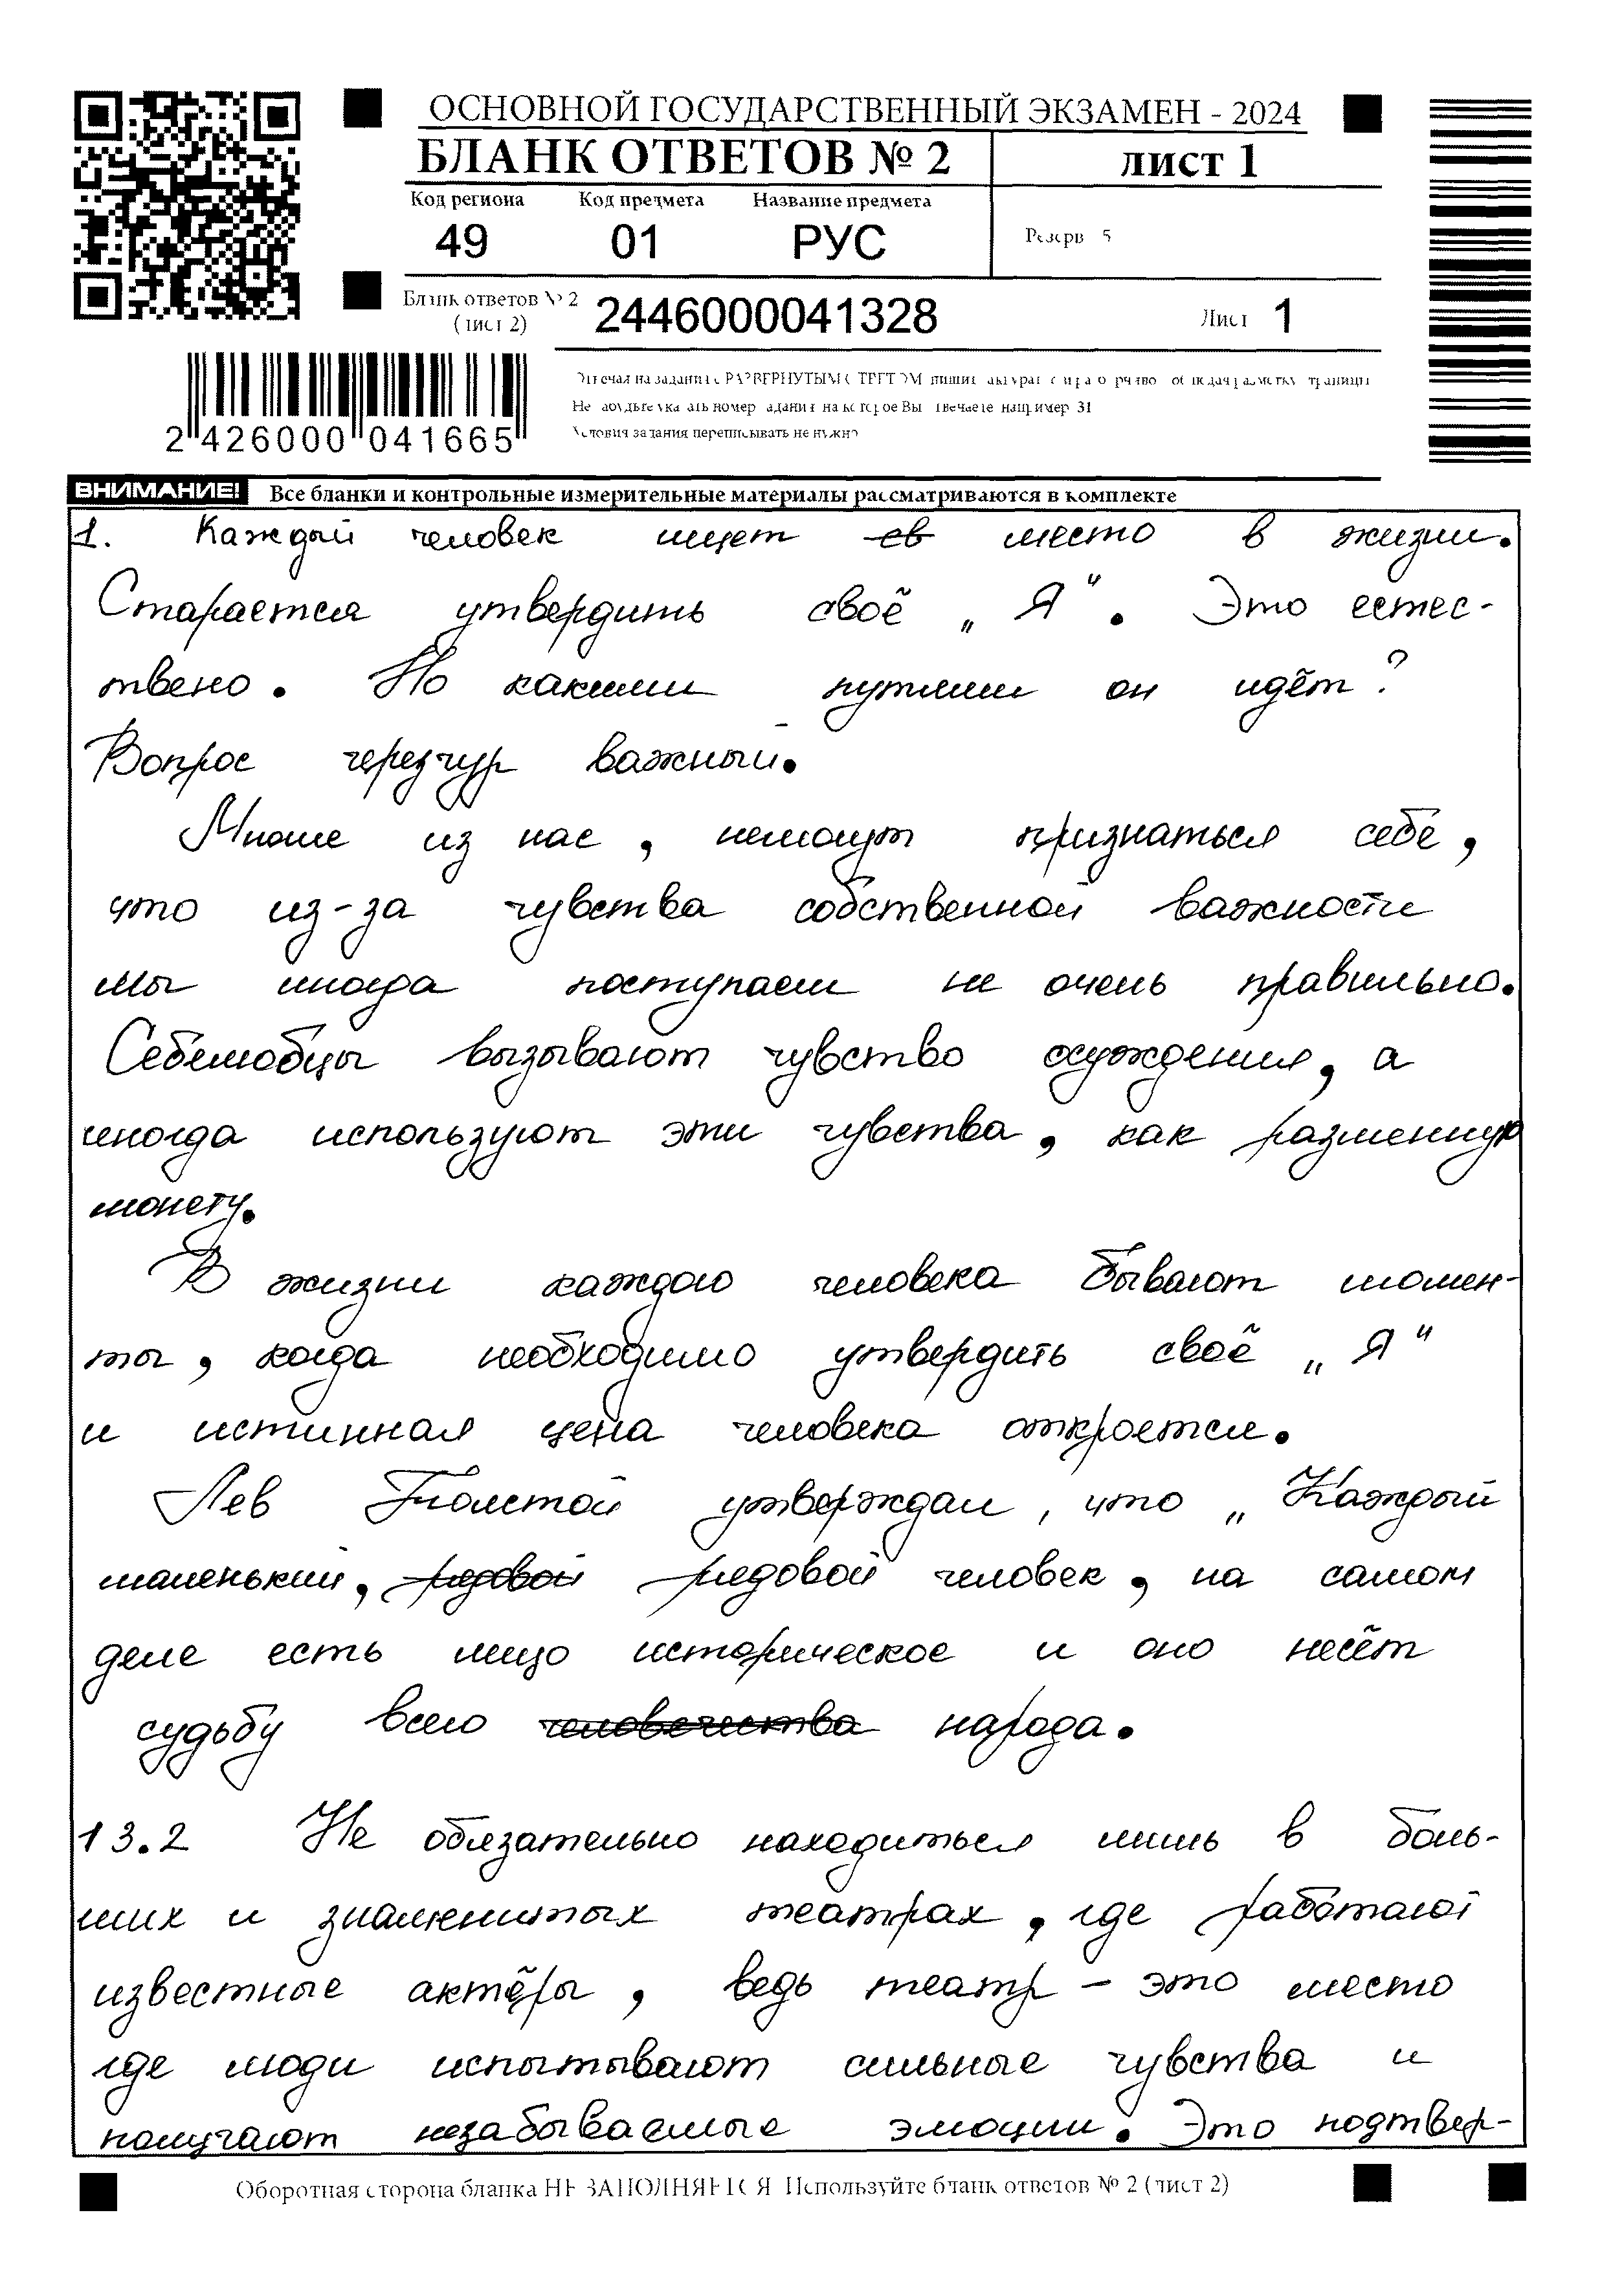 ОСНОВНОЙ ГОСУДАРСТВЕННЫЙ ЭКЗАМЕН - 2024
БЛАНК ОТВЕТОВ № 2
ЛИСТ 1
Код региона Код предмета Название предмета
49 01 РУС
Резерв 5
Бланк ответов № 2
(лист 2)
2446000041328
Лист 1
Отвечая на задания с РАЗВЕРНУТЫМ ОТВЕТОМ пишите аккуратно и разборчиво соблюдая разметку страницы
Не забудьте указать номер задания на которое Вы отвечаете например 31
Условия задания переписывать не нужно
2 426000 041665
ВНИМАНИЕ! Все бланки и контрольные измерительные материалы рассматриваются в комплекте
1. Каждый человек ищет св место в жизни.
Старается утвердить своё „Я“. Это естес-
твено. Но какими путями он идёт?
Вопрос черезчур важный.
Многие из нас, немогут признаться себе,
что из-за чувства собственной важности
мы иногда поступаем не очень правильно.
Себелюбцы вызывают чувство осуждения, а
иногда используют эти чувства, как разменную
монету.
В жизни каждого человека бывают момен-
ты, когда необходимо утвердить своё „Я“
и истинная цена человека откроется.
Лев Толстой утверждал, что „Каждый
маленький, рядовой рядовой человек, на самом
деле есть лицо историческое и оно несёт
судьбу всего человечества народа.
13.2 Не обязательно находиться лишь в боль-
ших и знаменитых театрах, где работают
известные актёры, ведь театр – это место
где люди испытывают сильные чувства и
получают незабываемые эмоции. Это подтвер-
Оборотная сторона бланка НЕ ЗАПОЛНЯЕТСЯ Используйте бланк ответов № 2 (лист 2)